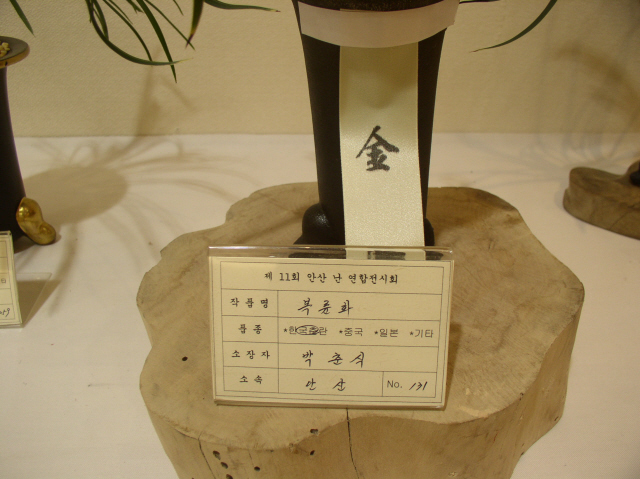 金
제 11회 안산 난 연합전시회
작품명 복륜화
품종 *한국춘란 *중국 *일본 *기타
소장자 박춘식
소속 안산 No. 131